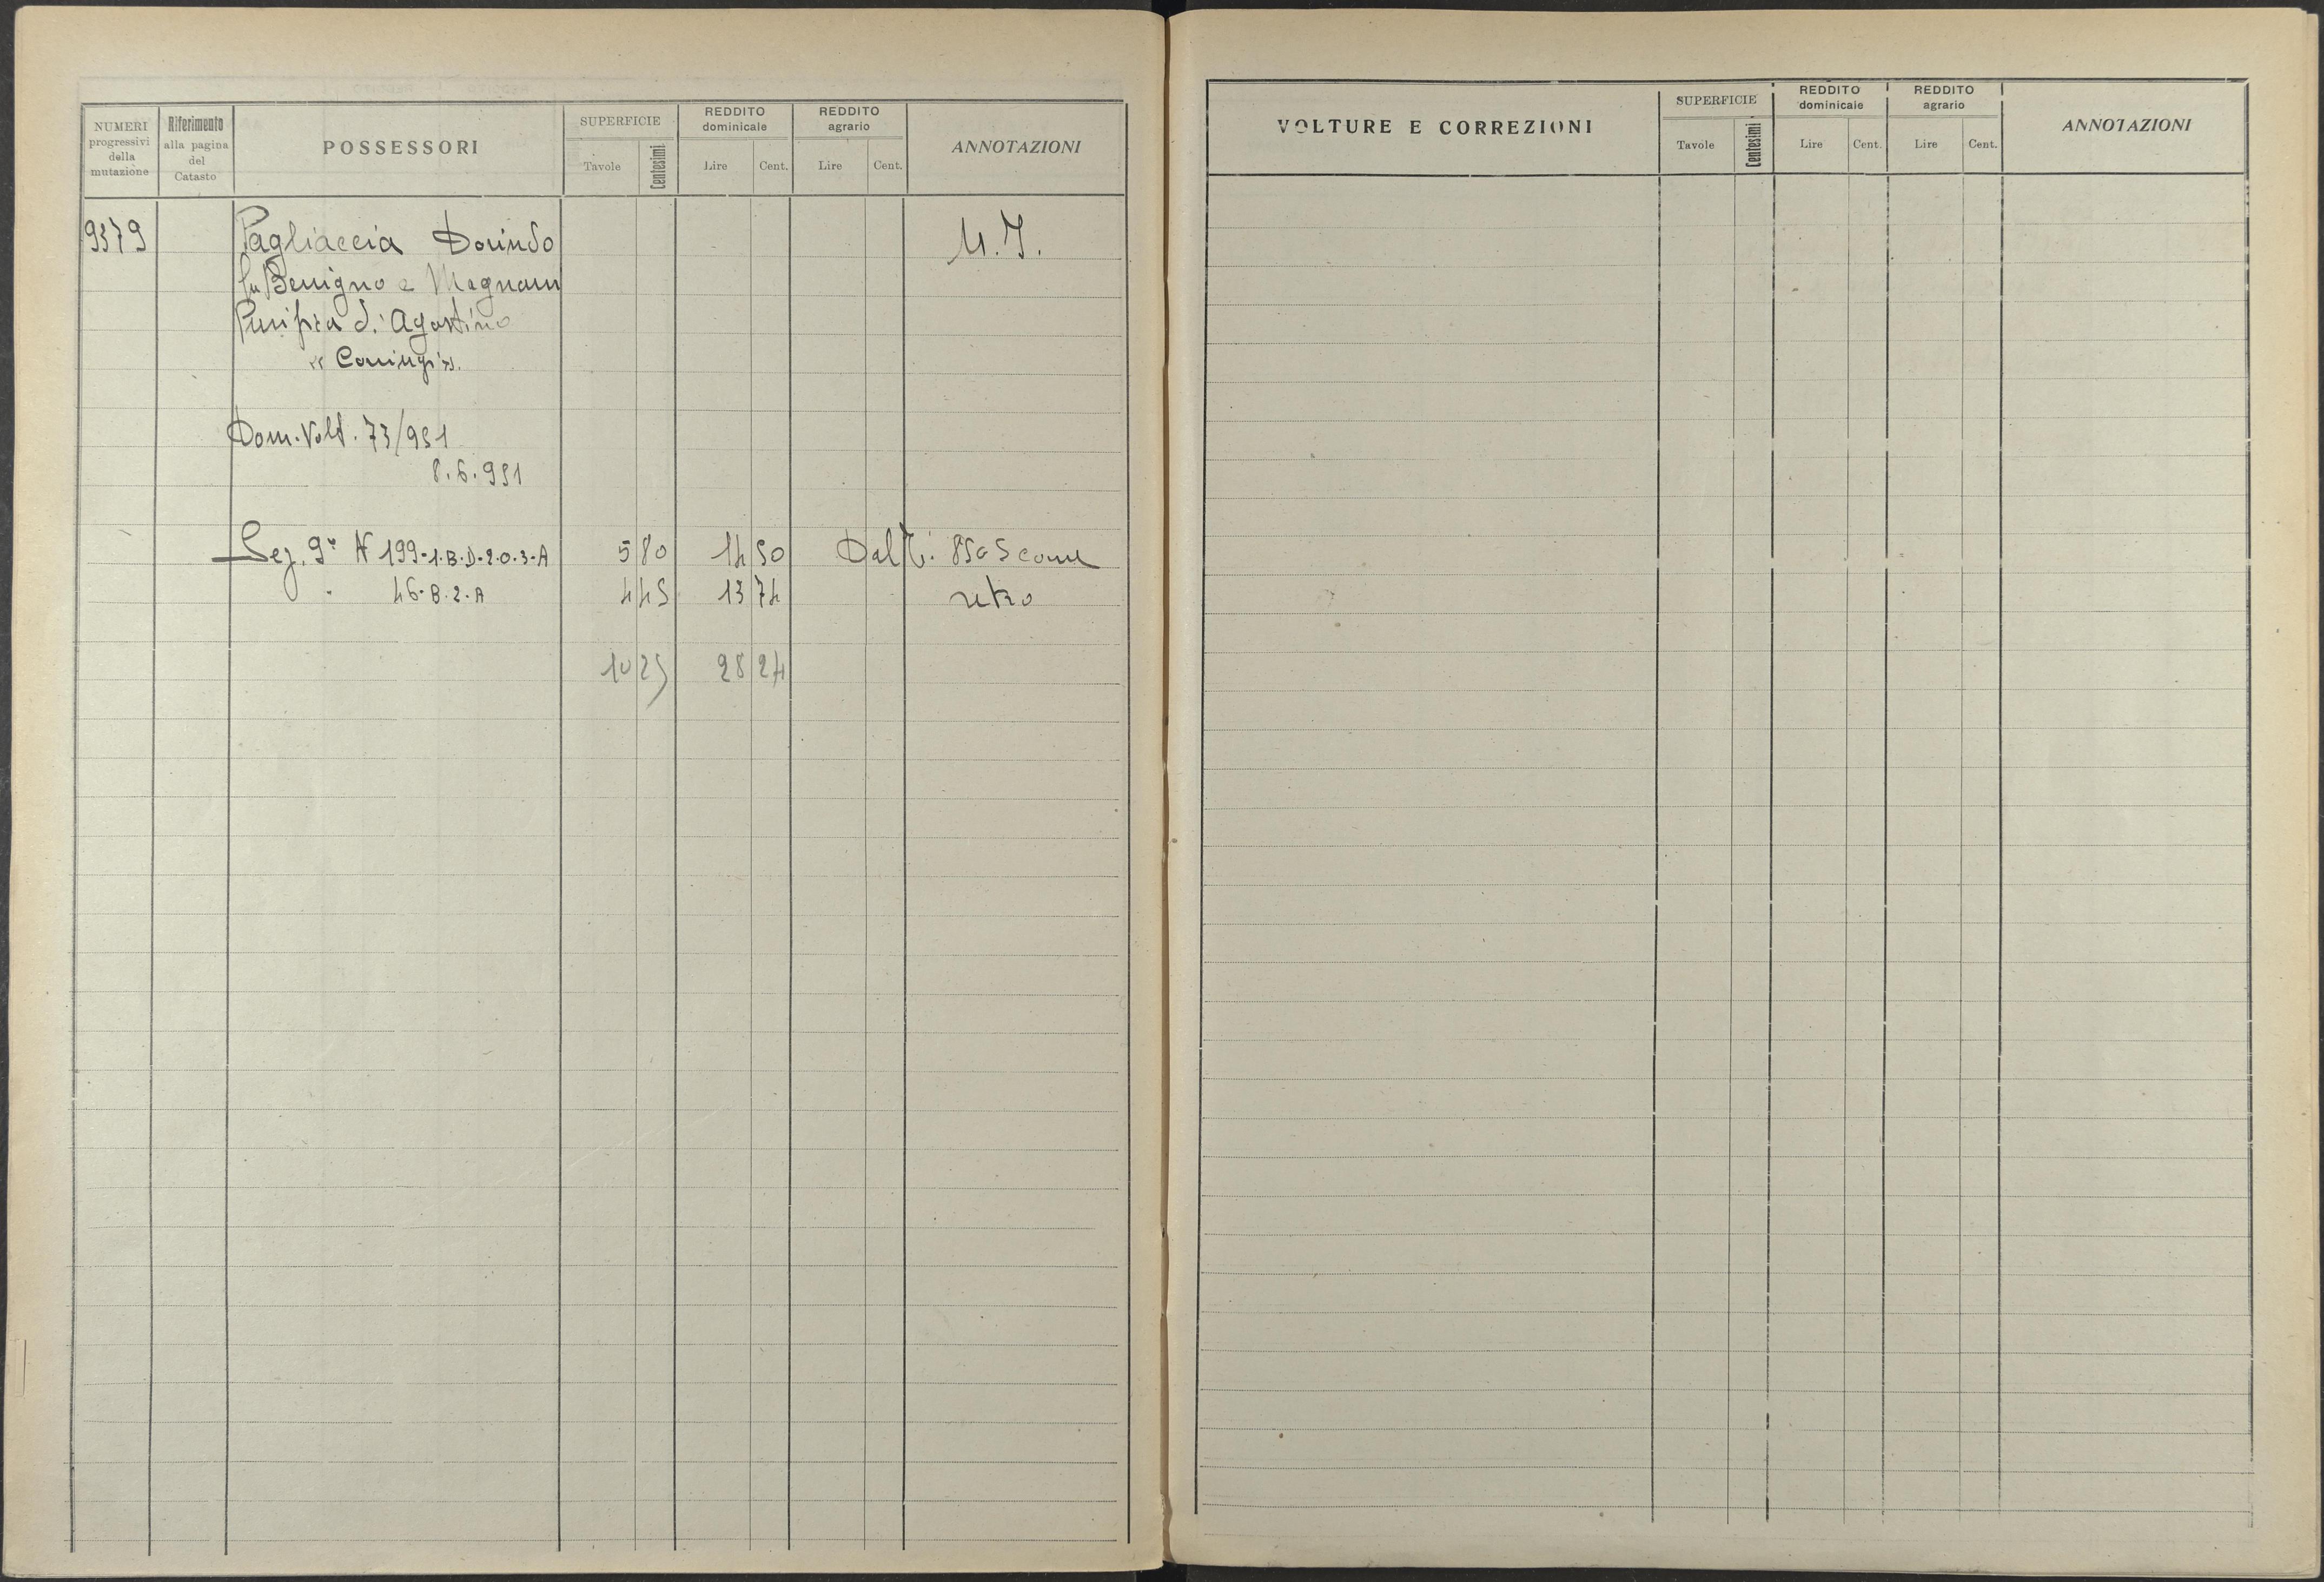 NUMERI progressivi della mutazione
Riferimento alla pagina del Catasto
POSSESSORI
SUPERFICIE
Tavole Centesimi
REDDITO dominicale
Lire Cent.
REDDITO agrario
Lire Cent.
ANNOTAZIONI
9379 Pagliaccia Dorindo U.I.
fu Benigno e Magnani
Purifica di Agostino
"Coniugi".
Dom. Volt. 73/951
8.6.951
Sez. 9ª N 199-1.B.D-2.0.3-A 5 80 14 50 Dal
" 46-B.2.A 4 45 13 74 retro
10 25 28 24
VOLTURE E CORREZIONI
SUPERFICIE
Tavole Centesimi
REDDITO dominicale
Lire Cent.
REDDITO agrario
Lire Cent.
ANNOTAZIONI